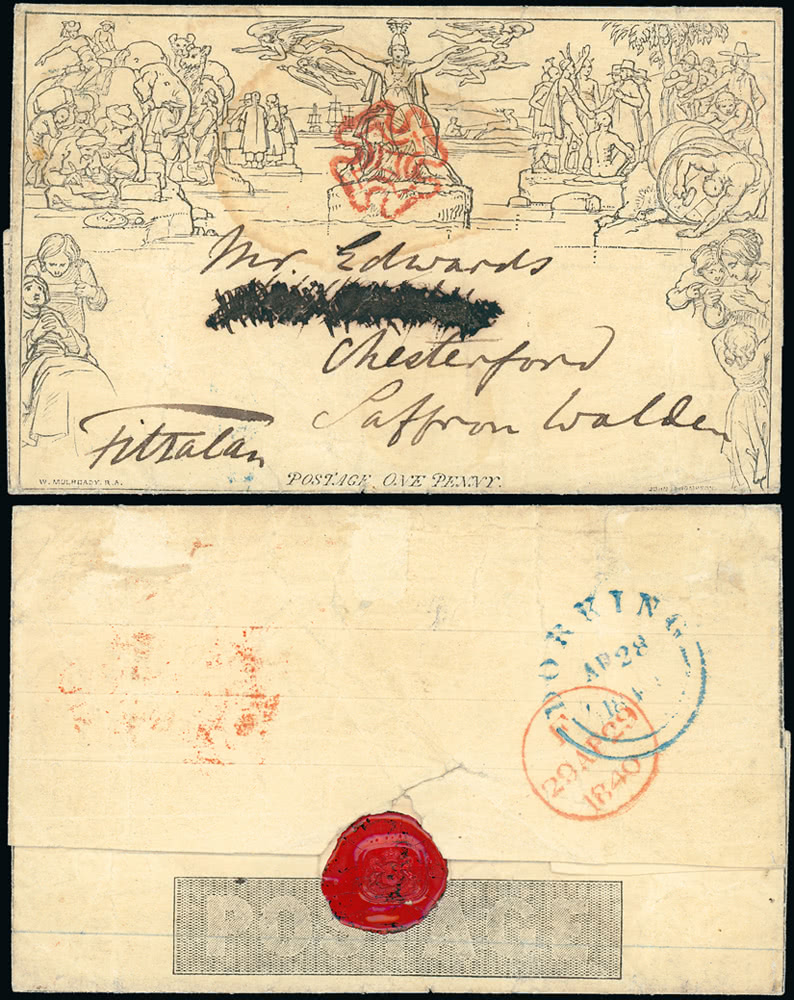 Mr. Edwards
Chesterford
Saffron Walden
Fitzalan
W. MULREADY, R.A.
POSTAGE ONE PENNY.
JOHN THOMPSON
DORKING
AP 28
184
F
29 AP 29
1840
POSTAGE